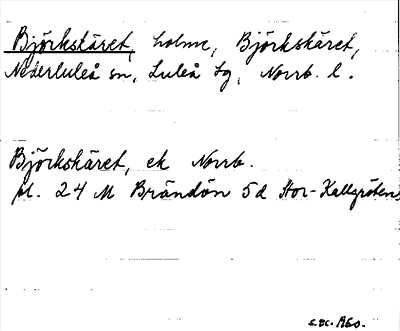 Björkskäret, holme, Björkskäret,
Nederluleå sn, Luleå tg, Norrb. l.
Björkskäret, ek Norrb.
pl. 24 M Brändön 5d Stor-Kallgröten
exc. AGo.